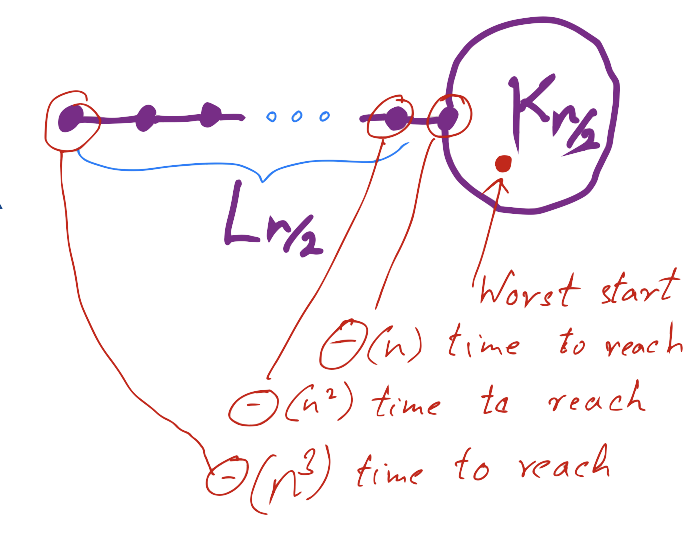 K n/2
L n/2
Worst start
Θ(n) time to reach
Θ(n²) time to reach
Θ(n³) time to reach